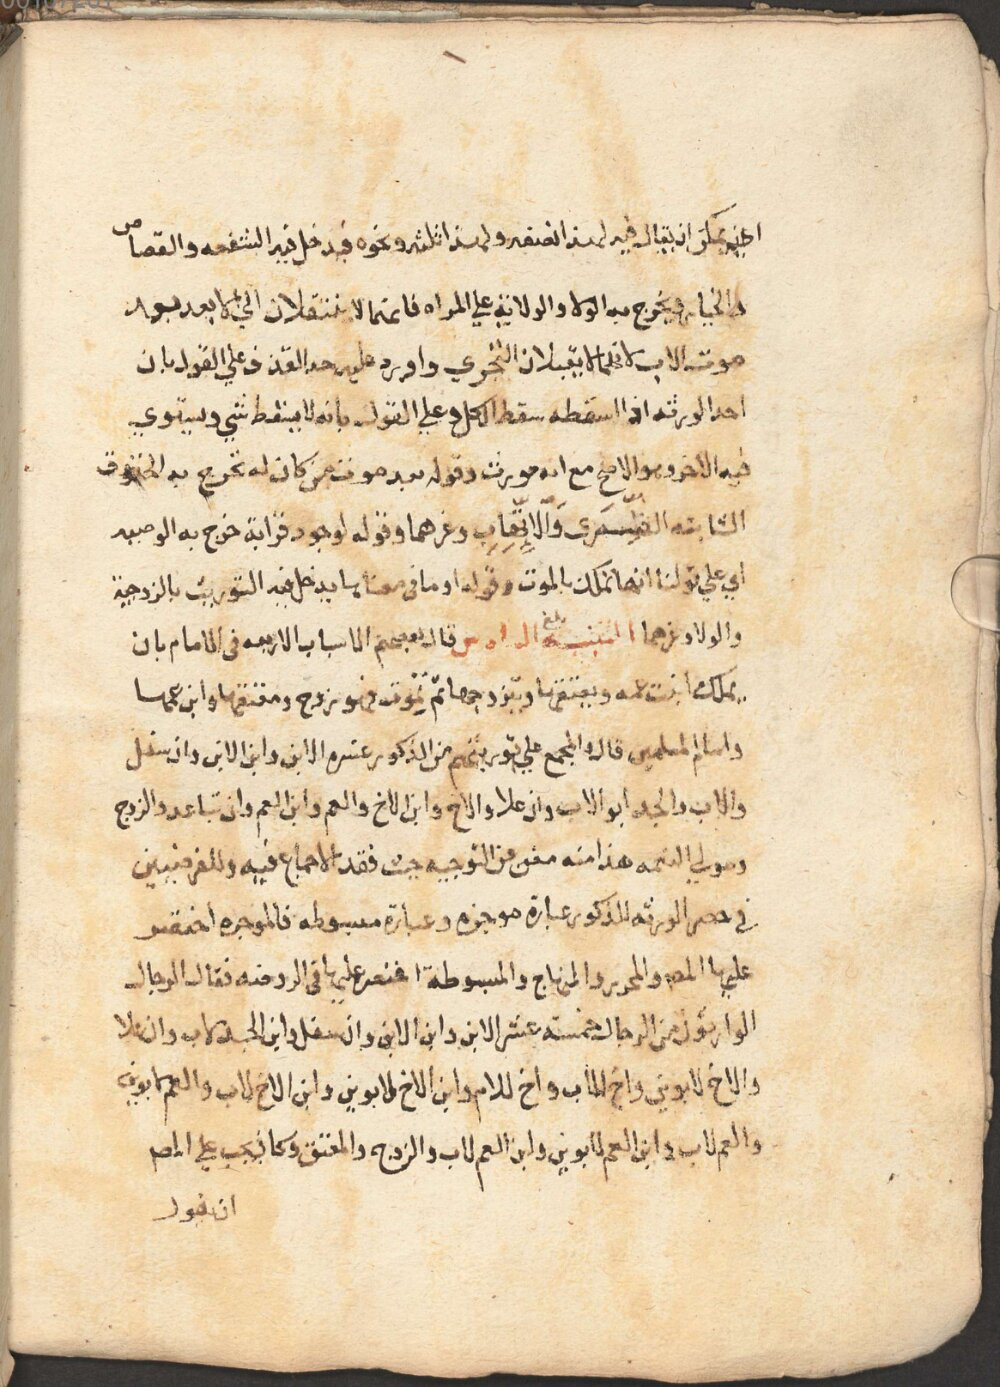 يمكن ان يقال فيه لهذا نصفه ولهذا ثلثه ونحوه فيدخل فيه الشفعه والقصاص
والخيار ويخرج به الولا والولاية علي المراه فانهما لا ينتقلان الي الابعد بعد
موت الاب لانهما لا يقبلان التجزي واورد عليه حد القذف علي القول بان
احد الورثه اذا اسقطه سقط الكل وعلي القول بانه لا يسقط شي ويستوفي
فيه الاخر وهو الاصح مع انه موروث وقوله بعد موت من كان له تخرج به الحقوق
الثابته وغرهما وقوله لوجود قرابة خرج به الوصيه
اي علي قولنا انها تملك بالموت وقوله او ما في معناها يدخل فيه التوريث بالزوجية
والولا وغرهما التنبيه بلغ قال بعضهم الاسباب الاربعه في الامام بان
يملك ابنت عمه ويعتقها ويتزوجها ثم تموت فهو زوج ومعتقها وابن عمها
وامام المسلمين قال والمجمع علي توريثهم من الذكور عشره الابن وابن الابن وان سفل
والاب والجد ابو الاب وان علا والاخ وابن الاخ والعم وابن العم وان تباعد والزوج
ومولي النعمه هذا منه مغن عن التوجيه حيث فقد الاجماع فيه وللفرضيين
في حصر الورثه الذكور عبارة موجزه وعبارة مبسوطه فالموجزه اختصر
عليها المص والمحرر والمنهاج والمبسوطة اختصر عليها في الروضه فقال الرجال
الوارثون من الرجال خمسة عشر الابن وابن الابن وان سفل وابن الجد كاب وان علا
والاخ لابوين واخ للاب واخ للام وابن الاخ لابوين وابن الاخ لاب والعم لابوين
والعم لاب وابن العم لابوين وابن العم لاب والزوج والمعتق وكان يجب علي المص
ان يقول